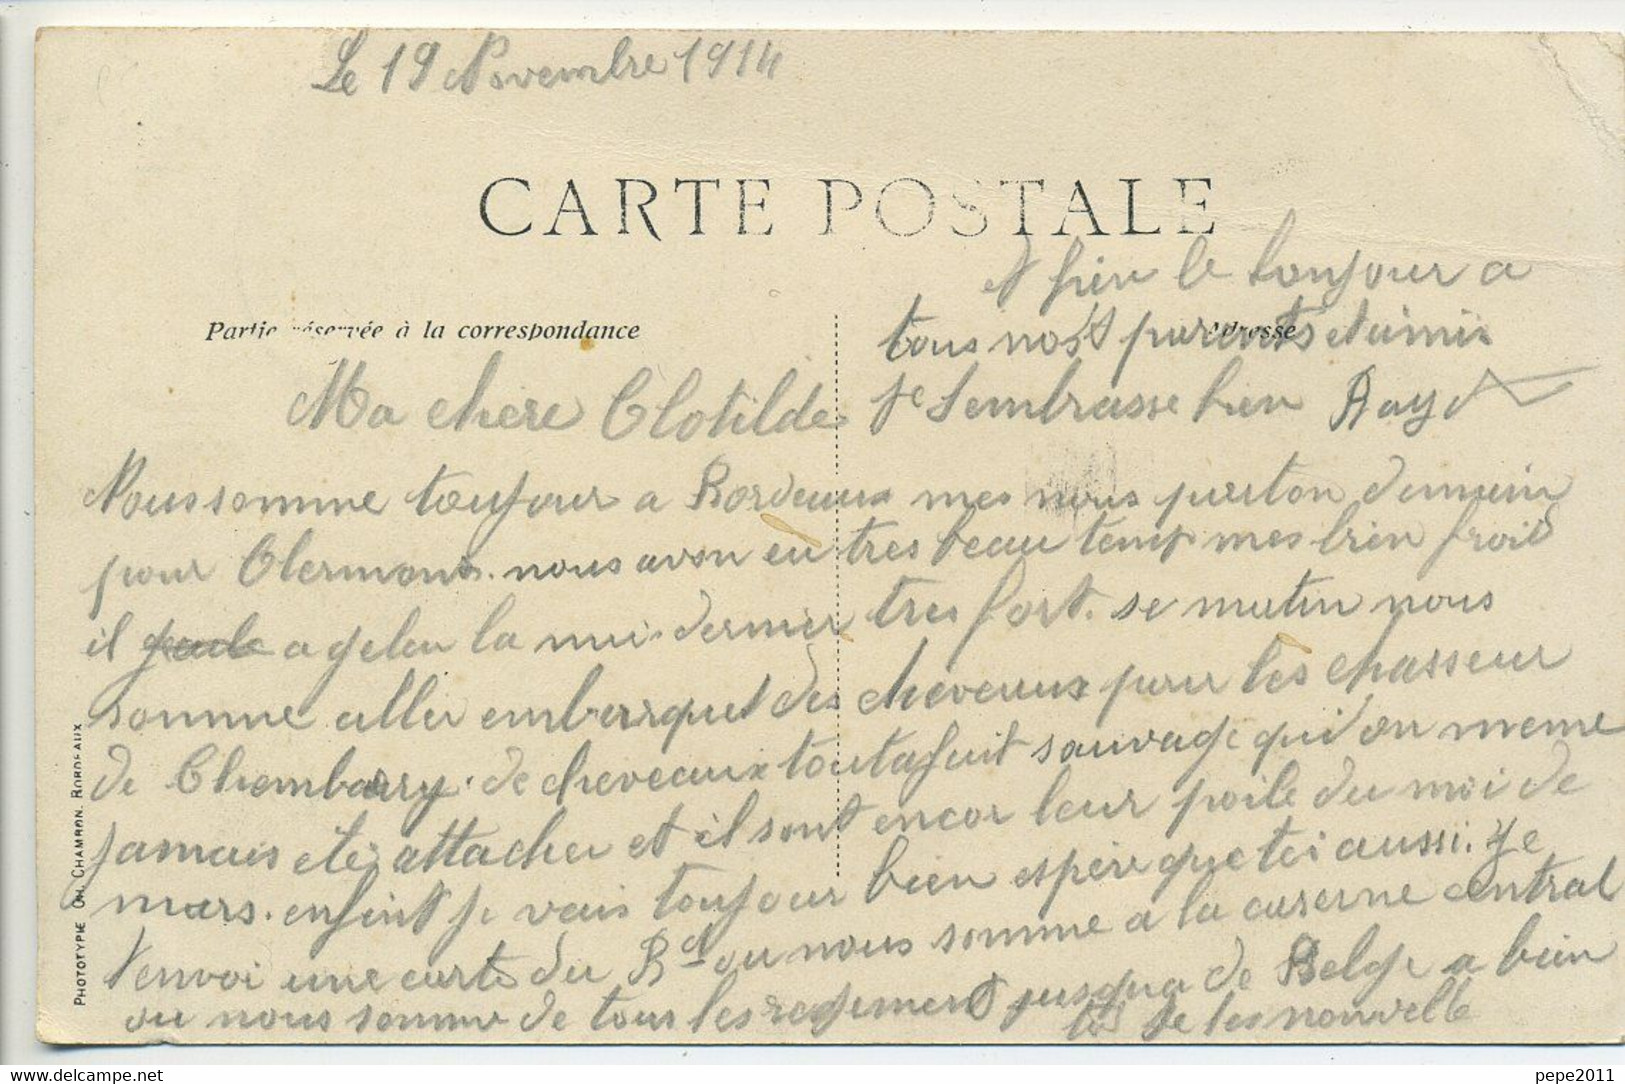 Le 19 Novembre 1914
CARTE POSTALE
Partie réservée à la correspondance
Adresse
Ma chere Clotilde
Nous somme toujour a Bordeaux mes nous parton demain
pour Clermont. nous avon eu tres beau temp mes bien froid
il a geler la nui dernier tres fort. se matin nous
somme aller embarquet des cheveaux pour les chasseur
de Chembarry. de cheveaux toutafait sauvage qui on meme
jamais etei attacher et il sont encor leur poile du moi de
mars. enfint je vais toujour bien espère que toi aussi. Je
t'envoi une carte du Bd ou nous somme a la caserne central
ou nous somme de tous les regiment jusqua de Belge a bien
to de tes nouvelle
le bonjour a
tous nos parents et amis
Je t'embrasse bien Rayd
PHOTOTYPIE CH. CHAMBON, BORDEAUX
pepe2011